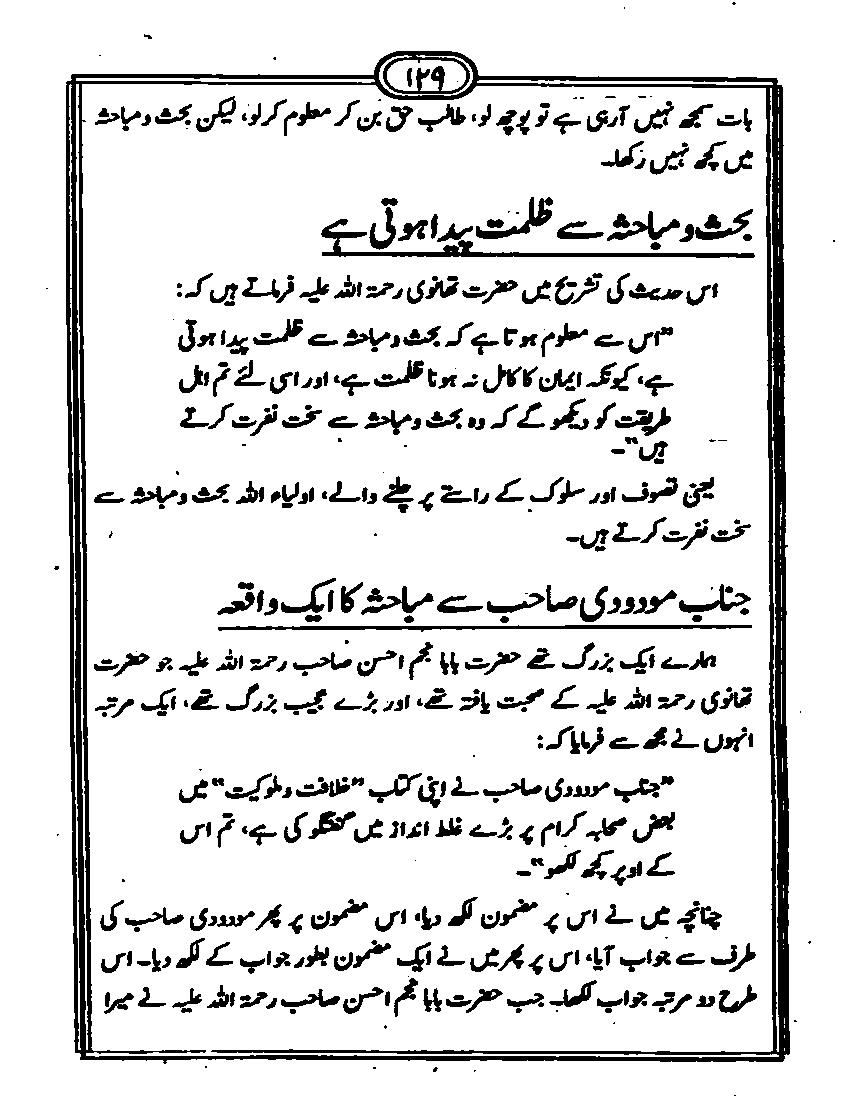 ۱۲۹
بات سمجھ نہیں آرہی ہے تو پوچھ لو، طالب حق بن کر معلوم کرلو، لیکن بحث و مباحثہ
میں کچھ نہیں رکھا۔
بحث و مباحثہ سے ظلمت پیدا ہوتی ہے
اس حدیث کی تشریح میں حضرت تھانوی رحمۃ اللہ علیہ فرماتے ہیں کہ:
”اس سے معلوم ہوتا ہے کہ بحث و مباحثہ سے ظلمت پیدا ہوتی
ہے، کیونکہ ایمان کا کامل نہ ہونا ظلمت ہے، اور اسی لئے تم اہل
طریقت کو دیکھو گے کہ وہ بحث و مباحثہ سے سخت نفرت کرتے
ہیں“۔
یعنی تصوف اور سلوک کے راستے پر چلنے والے، اولیاء اللہ بحث و مباحثہ سے
سخت نفرت کرتے ہیں۔
جناب مودودی صاحب سے مباحثہ کا ایک واقعہ
ہمارے ایک بزرگ تھے حضرت بابا نجم احسن صاحب رحمۃ اللہ علیہ جو حضرت
تھانوی رحمۃ اللہ علیہ کے صحبت یافتہ تھے، اور بڑے عجیب بزرگ تھے، ایک مرتبہ
انہوں نے مجھ سے فرمایا کہ:
”جناب مودودی صاحب نے اپنی کتاب ”خلافت و ملوکیت“ میں
بعض صحابہ کرام پر بڑے غلط انداز میں گفتگو کی ہے، تم اس
کے اوپر کچھ لکھو“۔
چنانچہ میں نے اس پر مضمون لکھ دیا، اس مضمون پر پھر مودودی صاحب کی
طرف سے جواب آیا، اس پر پھر میں نے ایک مضمون بطور جواب کے لکھ دیا۔ اس
طرح دو مرتبہ جواب لکھا۔ جب حضرت بابا نجم احسن صاحب رحمۃ اللہ علیہ نے میرا